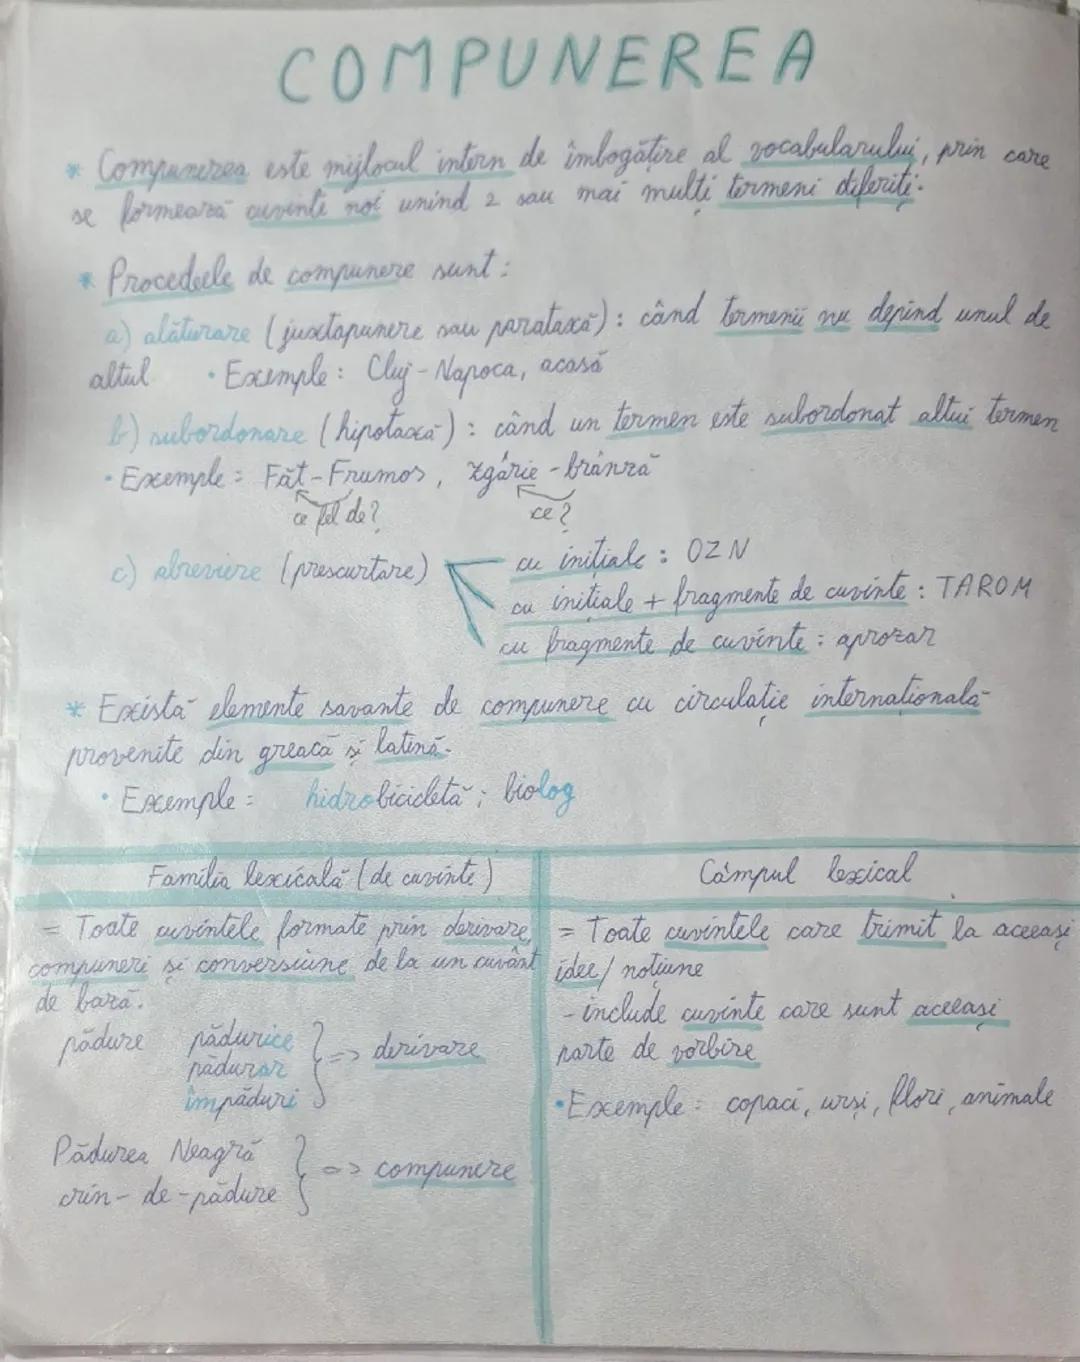 COMPUNEREA
* Compunerea este mijlocul intern de îmbogățire al vocabularului, prin care
se formează cuvinte noi unind 2 sau mai mulți termeni diferiți.
* Procedeele de compunere sunt:
a) alăturare (juxtapunere sau parataxă): când termenii nu depind unul de
altul • Exemple: Cluj-Napoca, acasă
b) subordonare (hipotaxă): când un termen este subordonat altui termen
• Exemple: Făt-Frumos, zgârie-brânză
ce fel de? ce?
c) abreviere (prescurtare)
cu inițiale: OZN
cu inițiale + fragmente de cuvinte: TAROM
cu fragmente de cuvinte: aprozar
* Există elemente savante de compunere cu circulație internațională
provenite din greacă și latină.
• Exemple: hidrobicicletă; biolog
Familia lexicală (de cuvinte)
= Toate cuvintele formate prin derivare,
compuneri și conversiune de la un cuvânt
de bază.
pădure pădurice
pădurar
împăduri
=> derivare
Pădurea Neagră
crin-de-pădure
=> compunere
Câmpul lexical
= Toate cuvintele care trimit la aceeași
idee/noțiune
- include cuvinte care sunt aceeași
parte de vorbire
• Exemple: copaci, urși, flori, animale